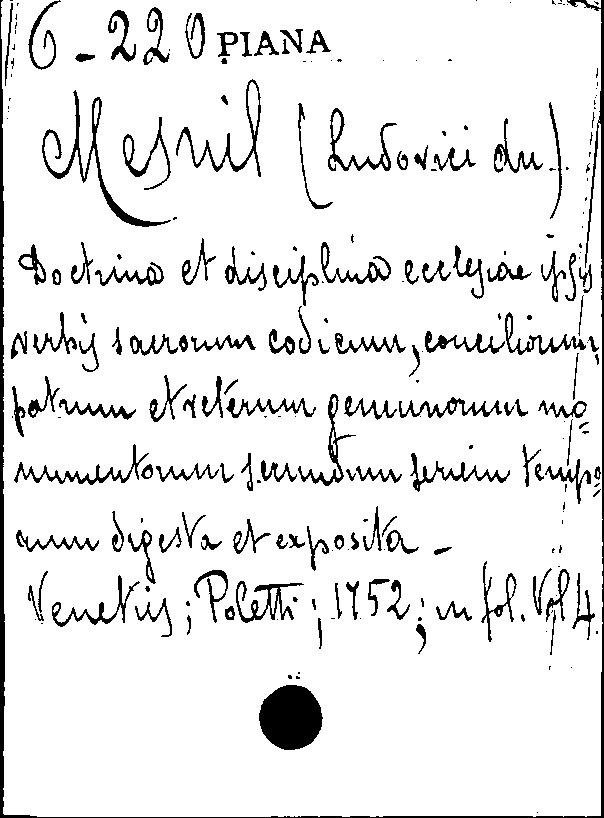 6-220 PIANA
Mesnil (Ludovici du)
Doctrina et disciplina ecclesiae ipsis
verbis sacrorum codicum, conciliorum,
patrum et veterum genuinorum mo=
numentorum secundum seriem tempo=
rum digesta et exposita -
Venetiis; Poletti; 1752; in fol. Vol 4.